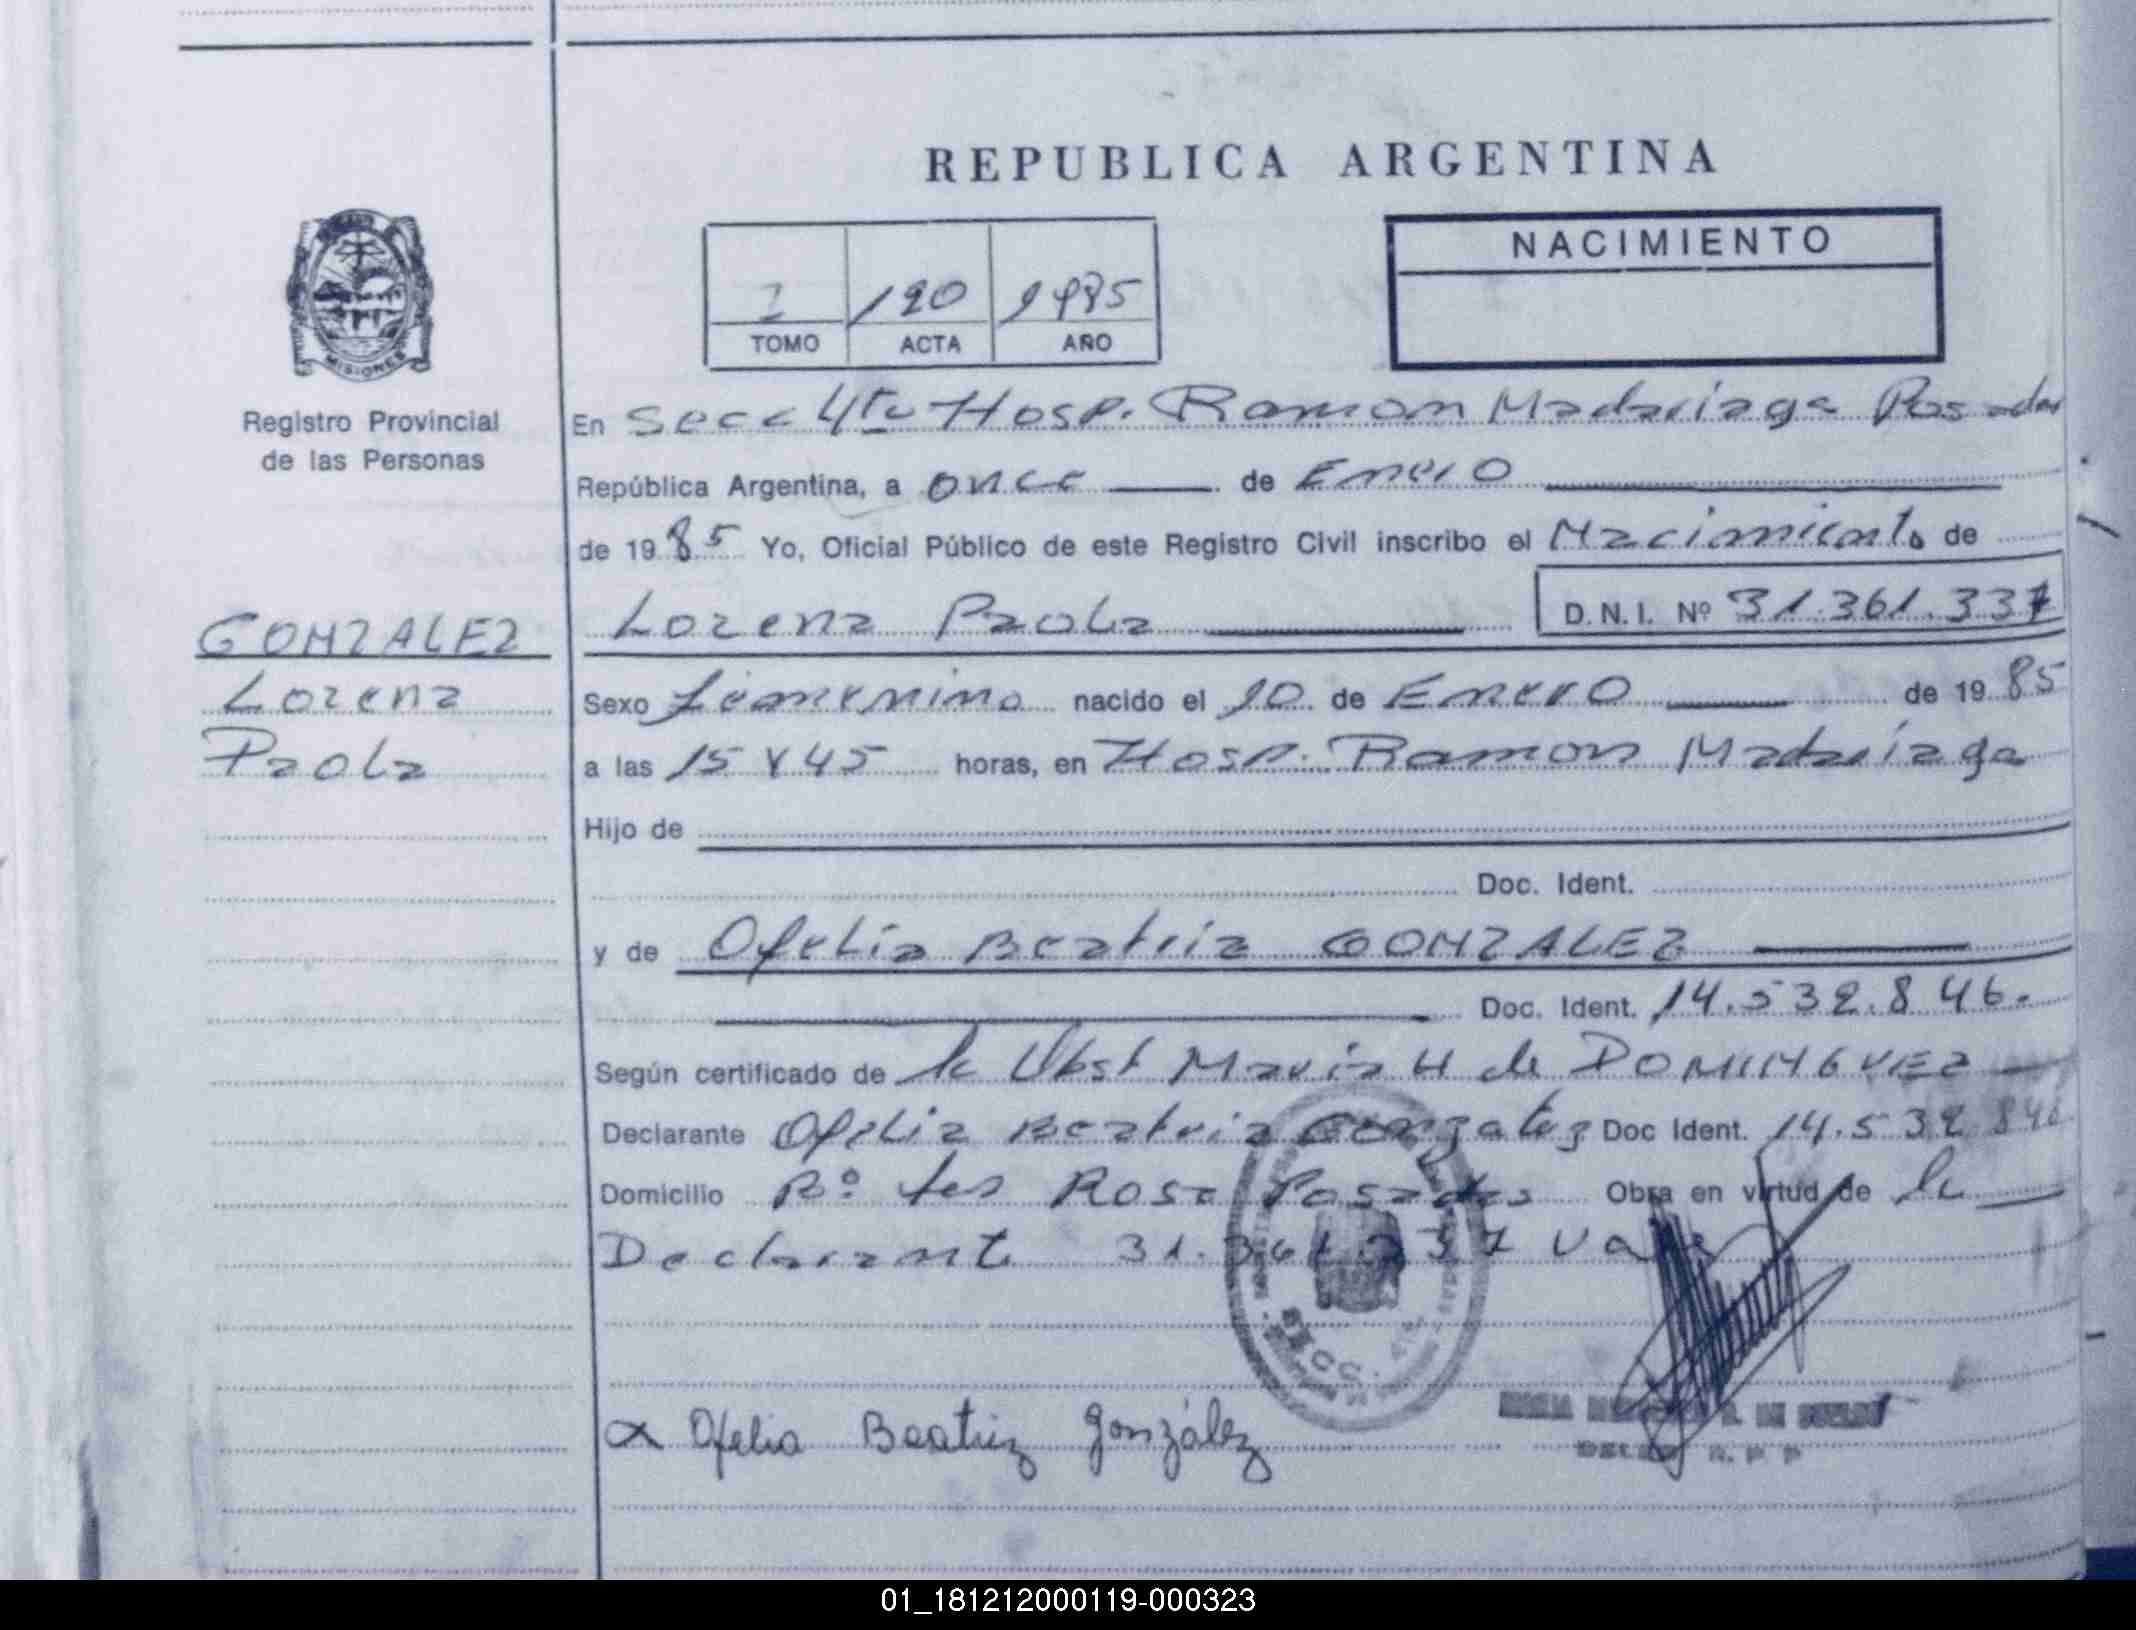 REPUBLICA ARGENTINA
NACIMIENTO
I 120 1985
TOMO ACTA AÑO
MISIONES
Registro Provincial
de las Personas
En Secc 4ta Hosp. Ramon Madariaga Posadas
República Argentina, a once de Enero
de 1985 Yo, Oficial Público de este Registro Civil inscribo el Nacimiento de
GONZALEZ
Lorena
Paola
Lorena Paola D.N.I. Nº 31.361.337
Sexo femenino nacido el 10 de Enero de 1985
a las 15 y 45 horas, en Hosp. Ramon Madariaga
Hijo de
Doc. Ident.
y de Ofelia Beatriz GONZALEZ
Doc. Ident. 14.532.846.
Según certificado de la Obst Maria H de DOMINGUEZ
Declarante Ofelia Beatriz Gonzalez Doc Ident. 14.532.846
Domicilio Bº Les Rosa Posadas Obra en virtud de la
Declarante 31.361.337 Vale
SECC.
x Ofelia Beatriz González
R. P. P
01_181212000119-000323